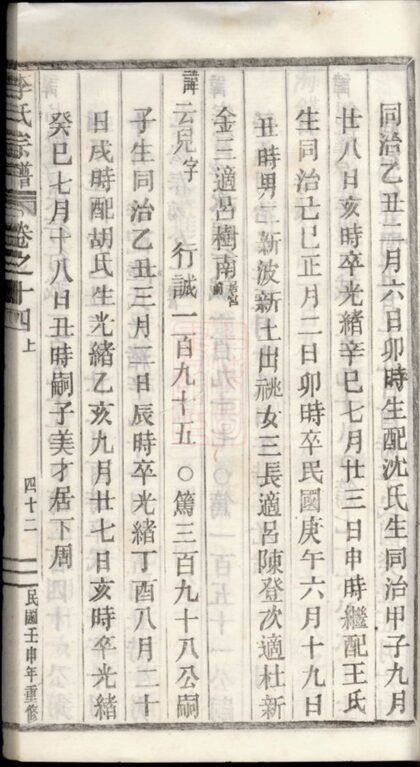 同治乙丑二月六日卯時生配沈氏生同治甲子九月
廿八日亥時卒光緒辛巳七月廿三日申時繼配王氏
生同治己巳正月二日卯時卒民國庚午六月十九日
丑時男二新波新土出祧女三長適呂陳登次適杜新
金三適呂樹南
諱云兒字 行誠一百九十五 〇篤三百九十八公嗣
子生同治乙丑三月一日辰時卒光緒丁酉八月二十
日戌時配胡氏生光緒乙亥九月廿七日亥時卒光緒
癸巳七月十八日丑時嗣子美才居下周
李氏宗譜 卷之十四上 四十二 民國壬申年重修